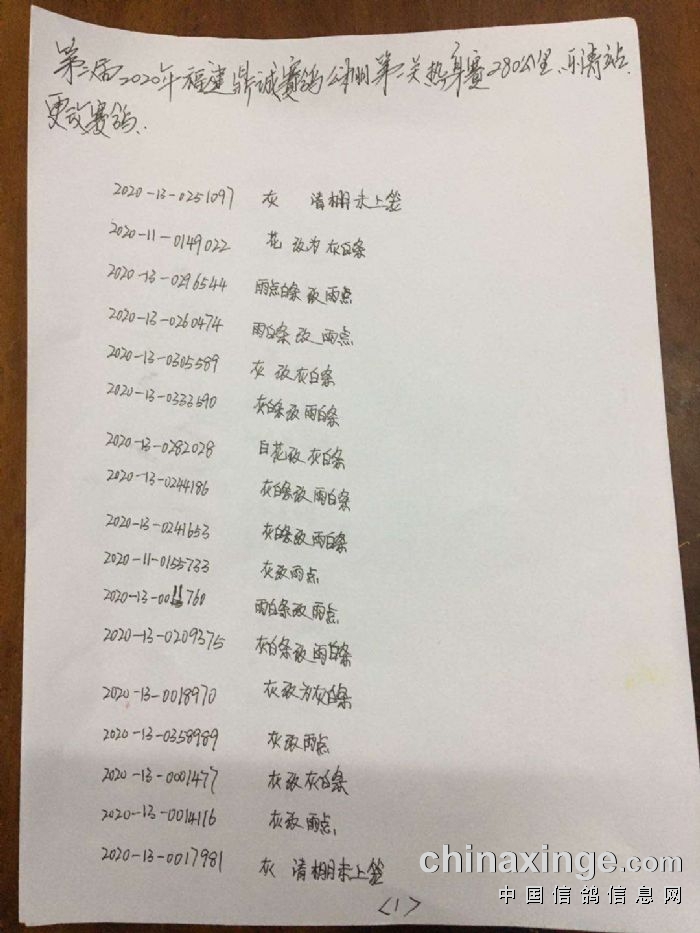 第二届2020年福建鼎诚赛鸽公棚第二关热身赛280公里、乐清站
更改赛鸽.
2020-13-0251097 灰 清棚未上签
2020-11-0149022 花 改为灰白条
2020-13-0296544 雨点白条改雨点
2020-13-0260474 雨白条改雨点
2020-13-0305589 灰 改灰白条
2020-13-0333590 灰白条改雨白条
2020-13-0282028 白花改灰白条
2020-13-0244186 灰白条改雨白条
2020-13-0241653 灰白条改雨白条
2020-11-0155733 灰改雨点
2020-13-0011760 雨白条改雨点
2020-13-0209375 灰白条改雨白条
2020-13-0018970 灰改为灰白条
2020-13-0358989 灰改雨点
2020-13-0001477 灰改灰白条
2020-13-0014116 灰改雨点
2020-13-0017981 灰 清棚未上签
<1>
chinaxinge.com
中国信鸽信息网